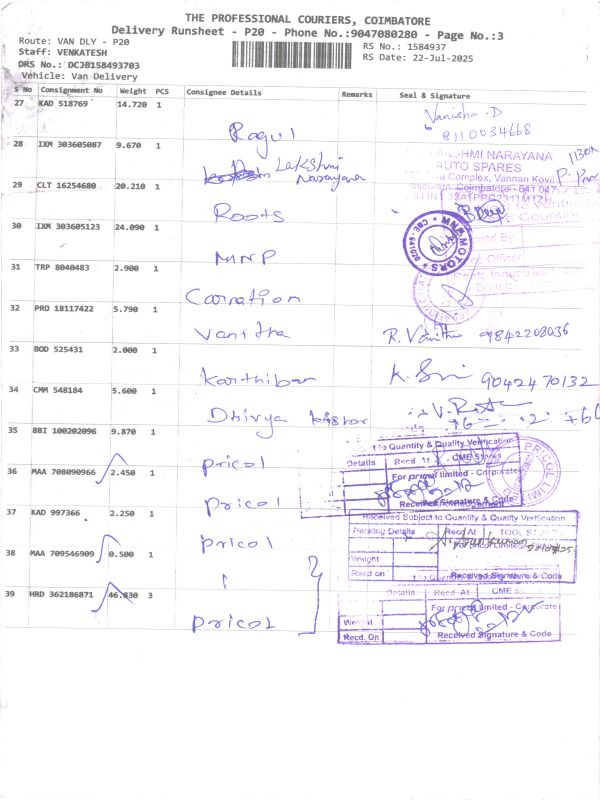 THE PROFESSIONAL COURIERS, COIMBATORE
Delivery Runsheet - P20 - Phone No.:9047080280 - Page No.:3
Route: VAN DLY - P20
Staff: VENKATESH
DRS No.: DCJB158493703
Vehicle: Van Delivery
RS No.: 1584937
RS Date: 22-Jul-2025
S No Consignment No Weight PCS Consignee Details Remarks Seal & Signature
27 KAD 518769 14.720 1 Ragul Vanisha.D
8110034668
28 IXM 303605087 9.670 1 Lakshmi Narayana
LAKSHMI NARAYANA
AUTO SPARES
Complex, Vannan Kovil
Coimbatore - 641 047
29 CLT 16254680 20.210 1 Roots
30 IXM 303605123 24.090 1 MNP
MNP MOTORS
31 TRP 8040483 2.900 1 Carnation
32 PRO 18117422 5.790 1 Vanitha R. Vanitha 9842208036
33 BOD 525431 2.000 1 Karthiban 9042470132
34 CMM 548184 5.600 1 Dhivya Kishor
35 BBI 100202096 9.870 1 Pricol
to Quantity & Quality Verification
Details Recd. At CME Stores
For pricol limited - Corporate
Received Signature & Code
PRICOL LIMITED
36 MAA 708090966 2.450 1 Pricol
37 KAD 997366 2.250 1 Pricol
Received Subject to Quantity & Quality Verification
Packing Details Recd At TOOL
Weight
Recd on Received Signature & Code
38 MAA 709546909 0.500 1
39 HRD 362186871 46.830 3 Pricol
Details Recd At CME
For pricol limited - Corporate
Weight
Recd. On Received Signature & Code